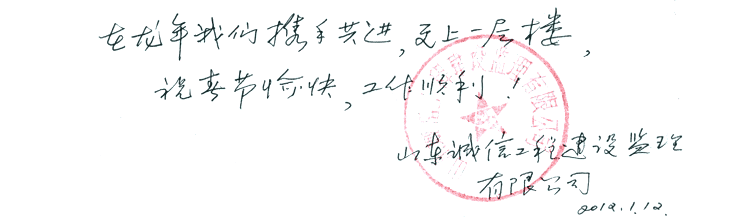 在龙年我们携手共进,更上一层楼,
祝春节愉快,工作顺利!
山东诚信工程建设监理
有限公司
2012.1.12.